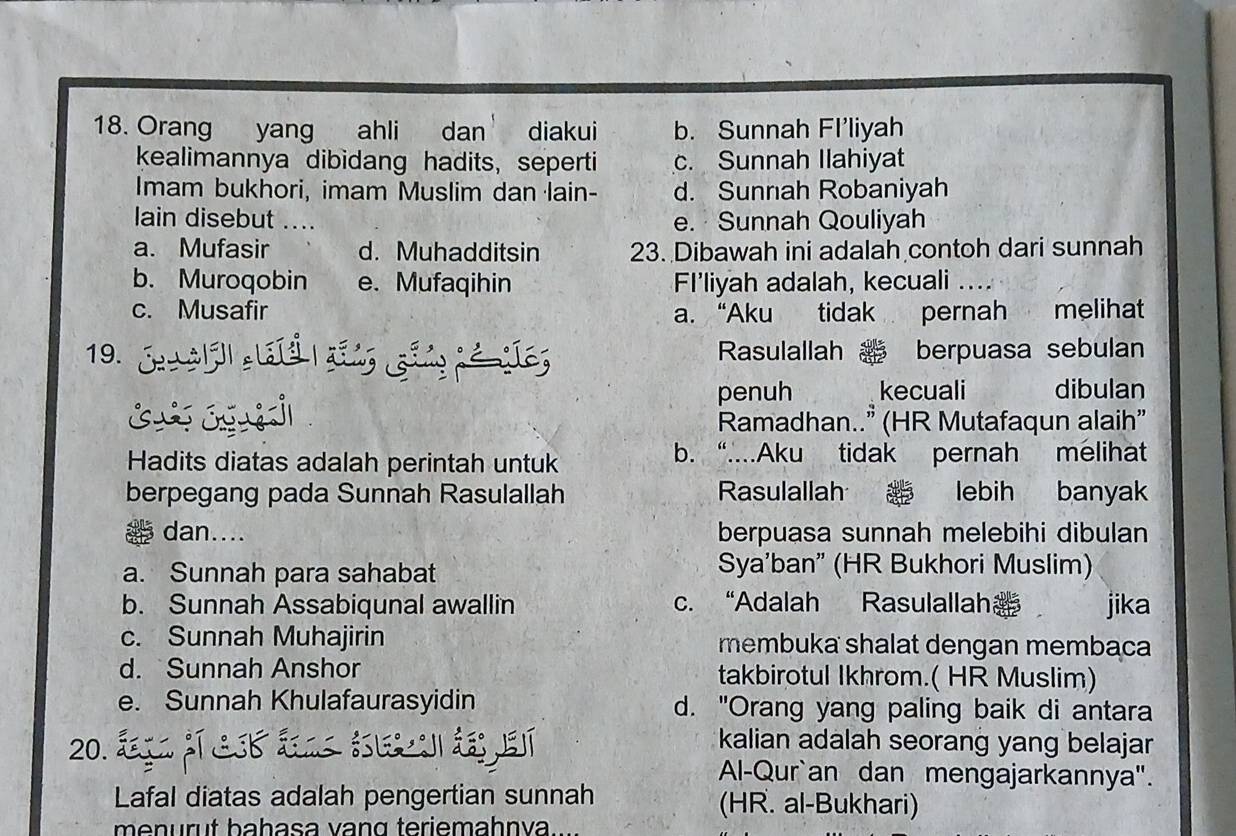 18. Orang yang ahli dan diakui
kealimannya dibidang hadits, seperti
Imam bukhori, imam Muslim dan lain-
lain disebut ....
a. Mufasir d. Muhadditsin
b. Muroqobin e. Mufaqihin
c. Musafir
19. وَعَلَيْكُمْ بِسُنَّتِي وَسُنَّةِ الْخُلَفَاءِ الرَّاشِدِينَ
الْمَهْدِيِّينَ بَعْدِى
Hadits diatas adalah perintah untuk
berpegang pada Sunnah Rasulallah
ﷺ dan....
a. Sunnah para sahabat
b. Sunnah Assabiqunal awallin
c. Sunnah Muhajirin
d. Sunnah Anshor
e. Sunnah Khulafaurasyidin
20. اَلطَّرِيْقَةُ الْمُعْتَادَةُ حَسَنَةً كَانَتْ أَمْ سَيِّئَةً
Lafal diatas adalah pengertian sunnah
menurut bahasa yang terjemahnya....
b. Sunnah FI'liyah
c. Sunnah Ilahiyat
d. Sunnah Robaniyah
e. Sunnah Qouliyah
23. Dibawah ini adalah contoh dari sunnah
FI'liyah adalah, kecuali ....
a. "Aku tidak pernah melihat
Rasulallah ﷺ berpuasa sebulan
penuh kecuali dibulan
Ramadhan.." (HR Mutafaqun alaih"
b. "....Aku tidak pernah melihat
Rasulallah ﷺ lebih banyak
berpuasa sunnah melebihi dibulan
Sya'ban" (HR Bukhori Muslim)
c. "Adalah Rasulallahﷺ jika
membuka shalat dengan membaca
takbirotul Ikhrom.( HR Muslim)
d. "Orang yang paling baik di antara
kalian adalah seorang yang belajar
Al-Qur`an dan mengajarkannya".
(HR. al-Bukhari)